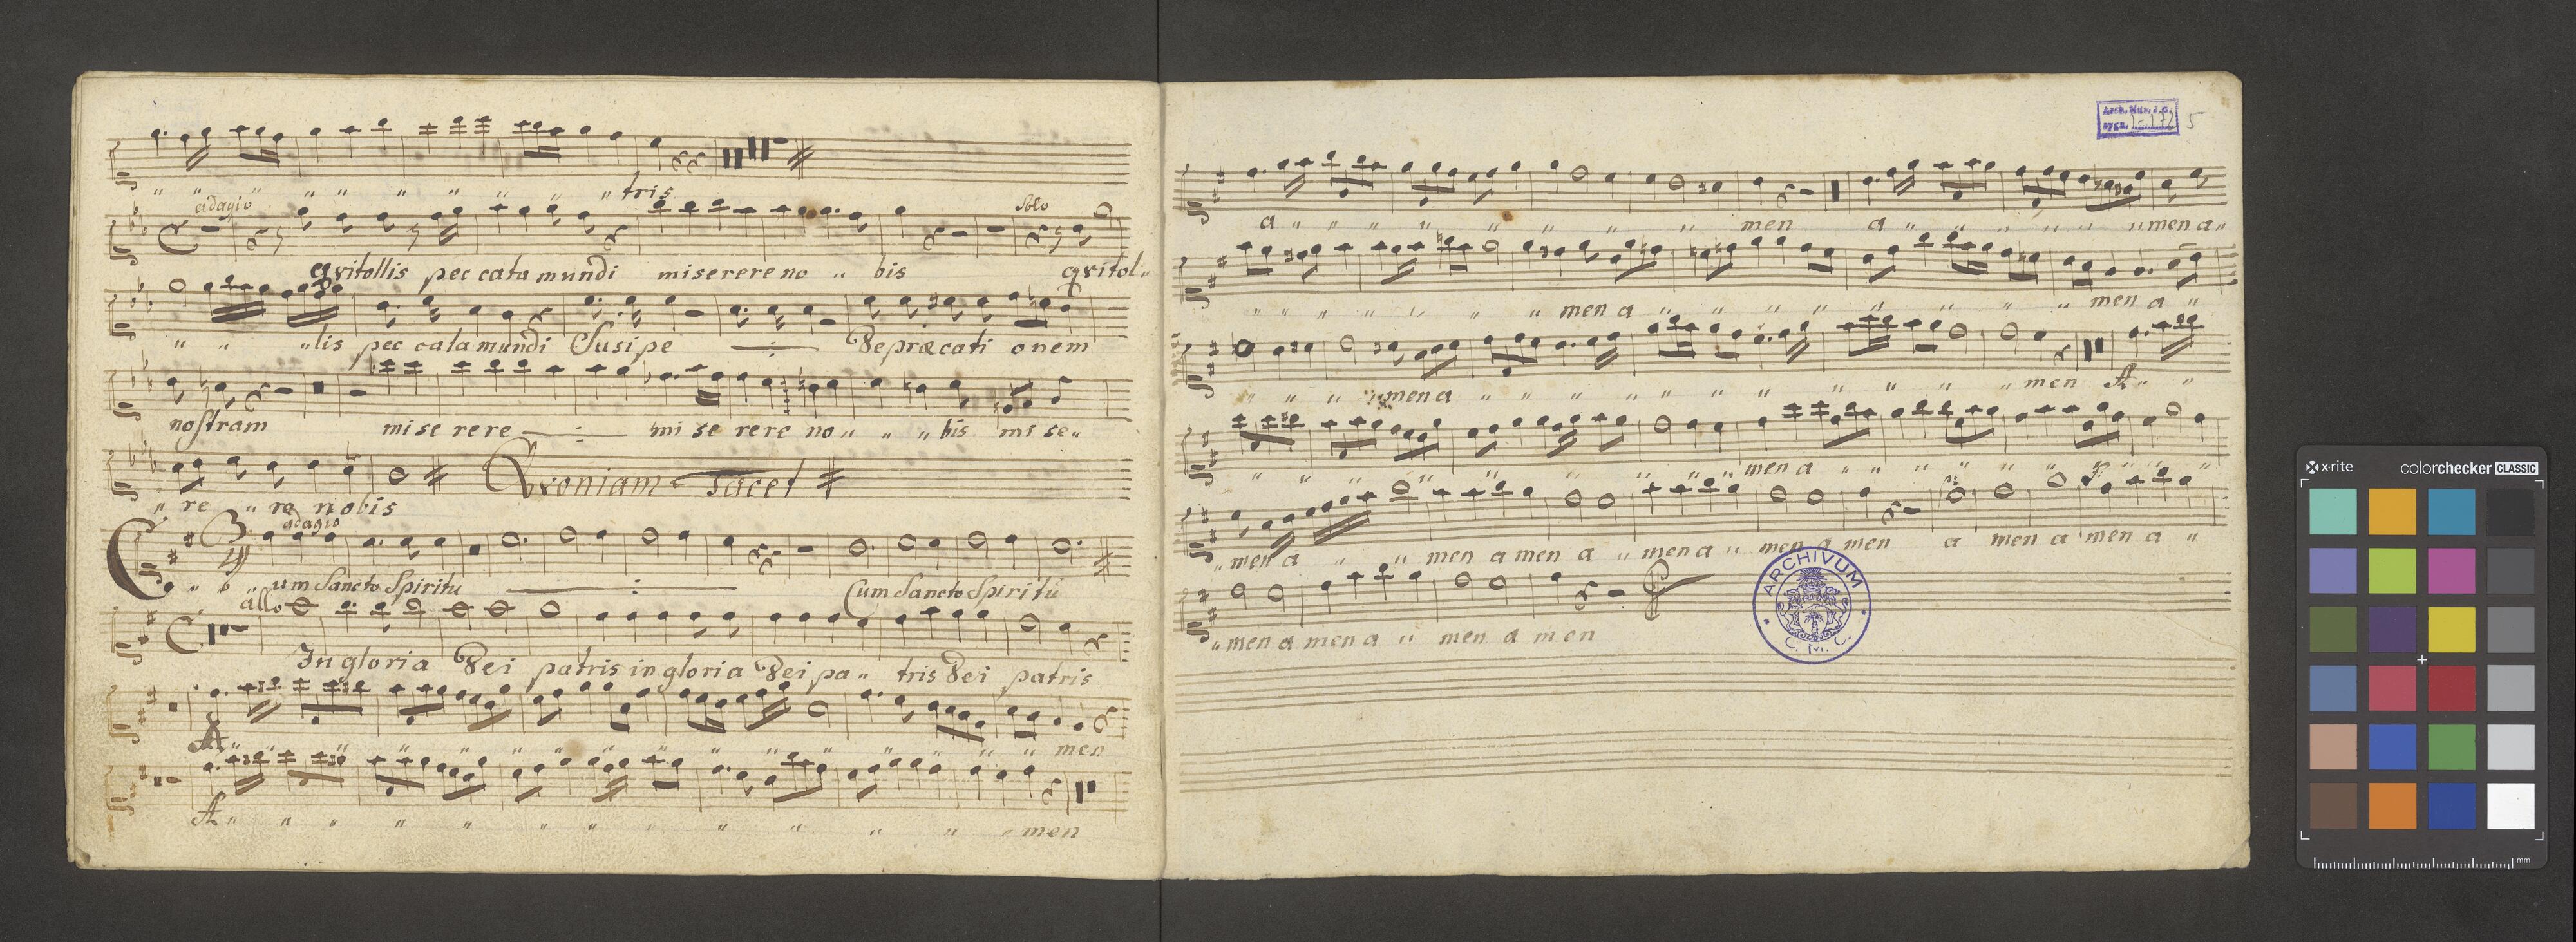 " " " " " " " " " " tris
adagio
Solo
qvitollis peccata mundi miserere no " bis qvitol "
" " " lis peccata mundi Susipe Depræcationem
nostram miserere miserere no " " " bis mise "
" re " re nobis
Qvoniam Tacet
adagio
Cum Sancto Spiritu Cum Sancto Spiritu
allo
In gloria Dei patris in gloria Dei pa " tris Dei patris
A " " " " " " " " " " " men
A " " " " " " " " " " " " men
Arch. Mus. J.G.
sygn. 5
a " " " " " " " " men a " " " " " " men a "
" " " " " " " men a " " " " " " " " men a "
" " " " men a " " " " " " " " " " men A " "
" " " " " " " " " " men a " " " " " " " "
" men a " " men a men a " men a " men a men a men a men a "
" men a men a " men a men
ARCHIVUM
C. M. C.
x-rite
colorchecker CLASSIC
mm